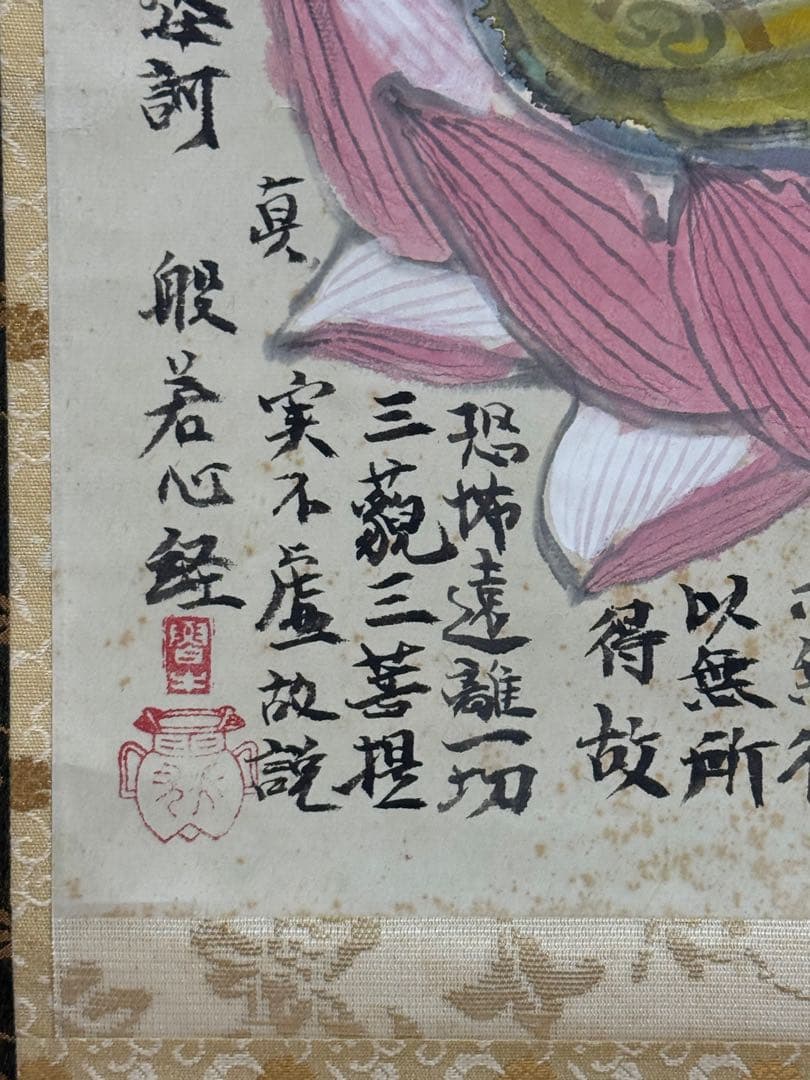 以無所
得故
恐怖遠離一切
三藐三菩提
真
実不虚故説
婆訶
般若心経